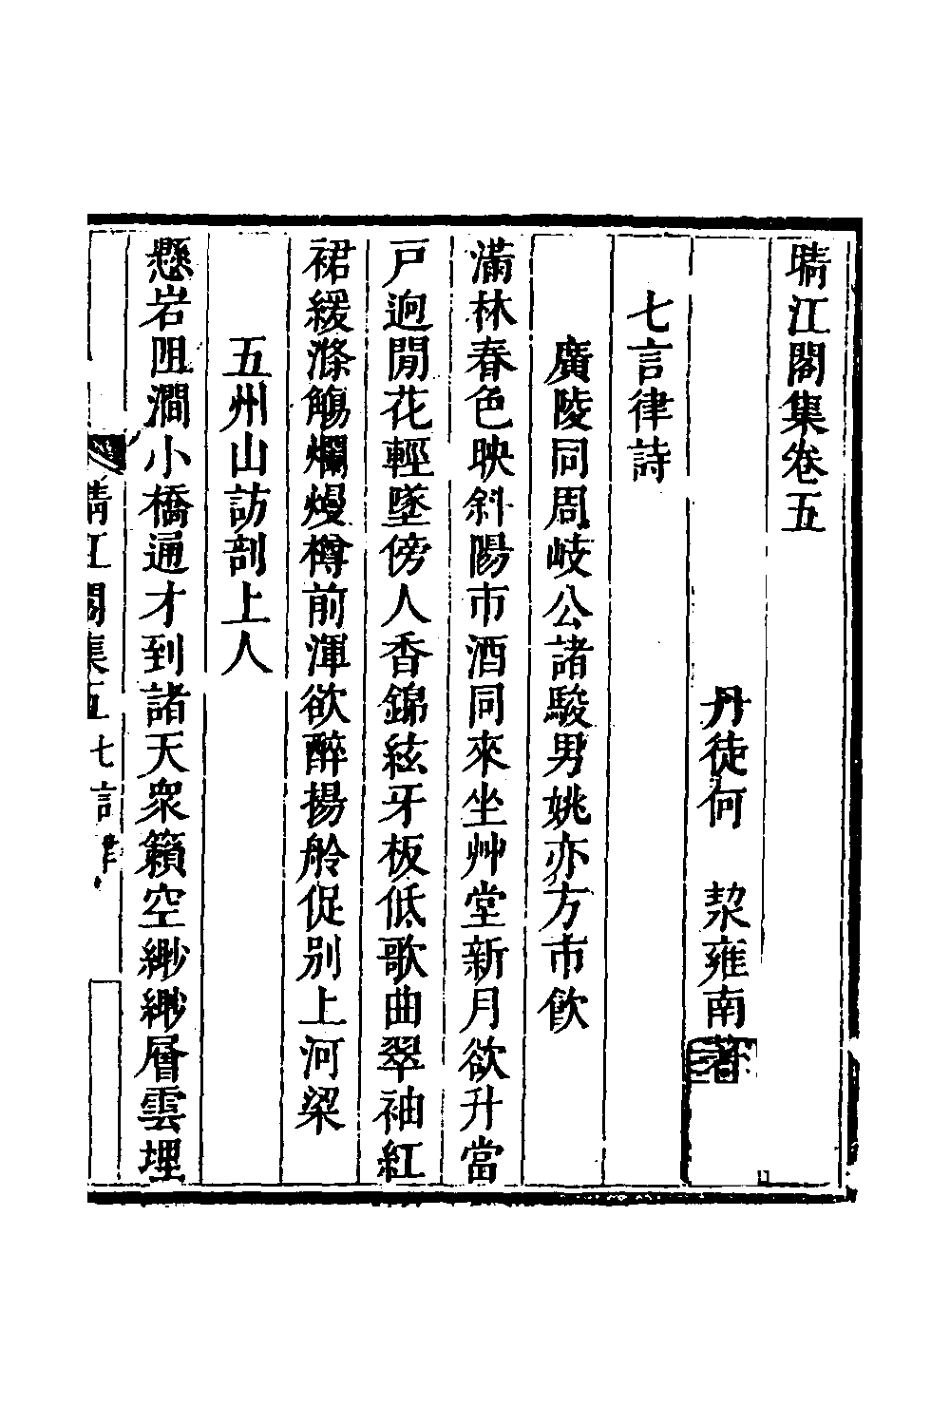 晴江閣集卷五
丹徒何　洯雍南著
七言律詩
廣陵同周岐公諸駿男姚亦方市飲
滿林春色映斜陽市酒同來坐艸堂新月欲升當
戶逈閒花輕墜傍人香錦絃牙板低歌曲翠袖紅
裙緩滌觴爛熳樽前渾欲醉揚舲促別上河梁
五州山訪剖上人
懸岩阻澗小橋通才到諸天衆籟空緲緲層雲埋
晴江閣集五 七言律